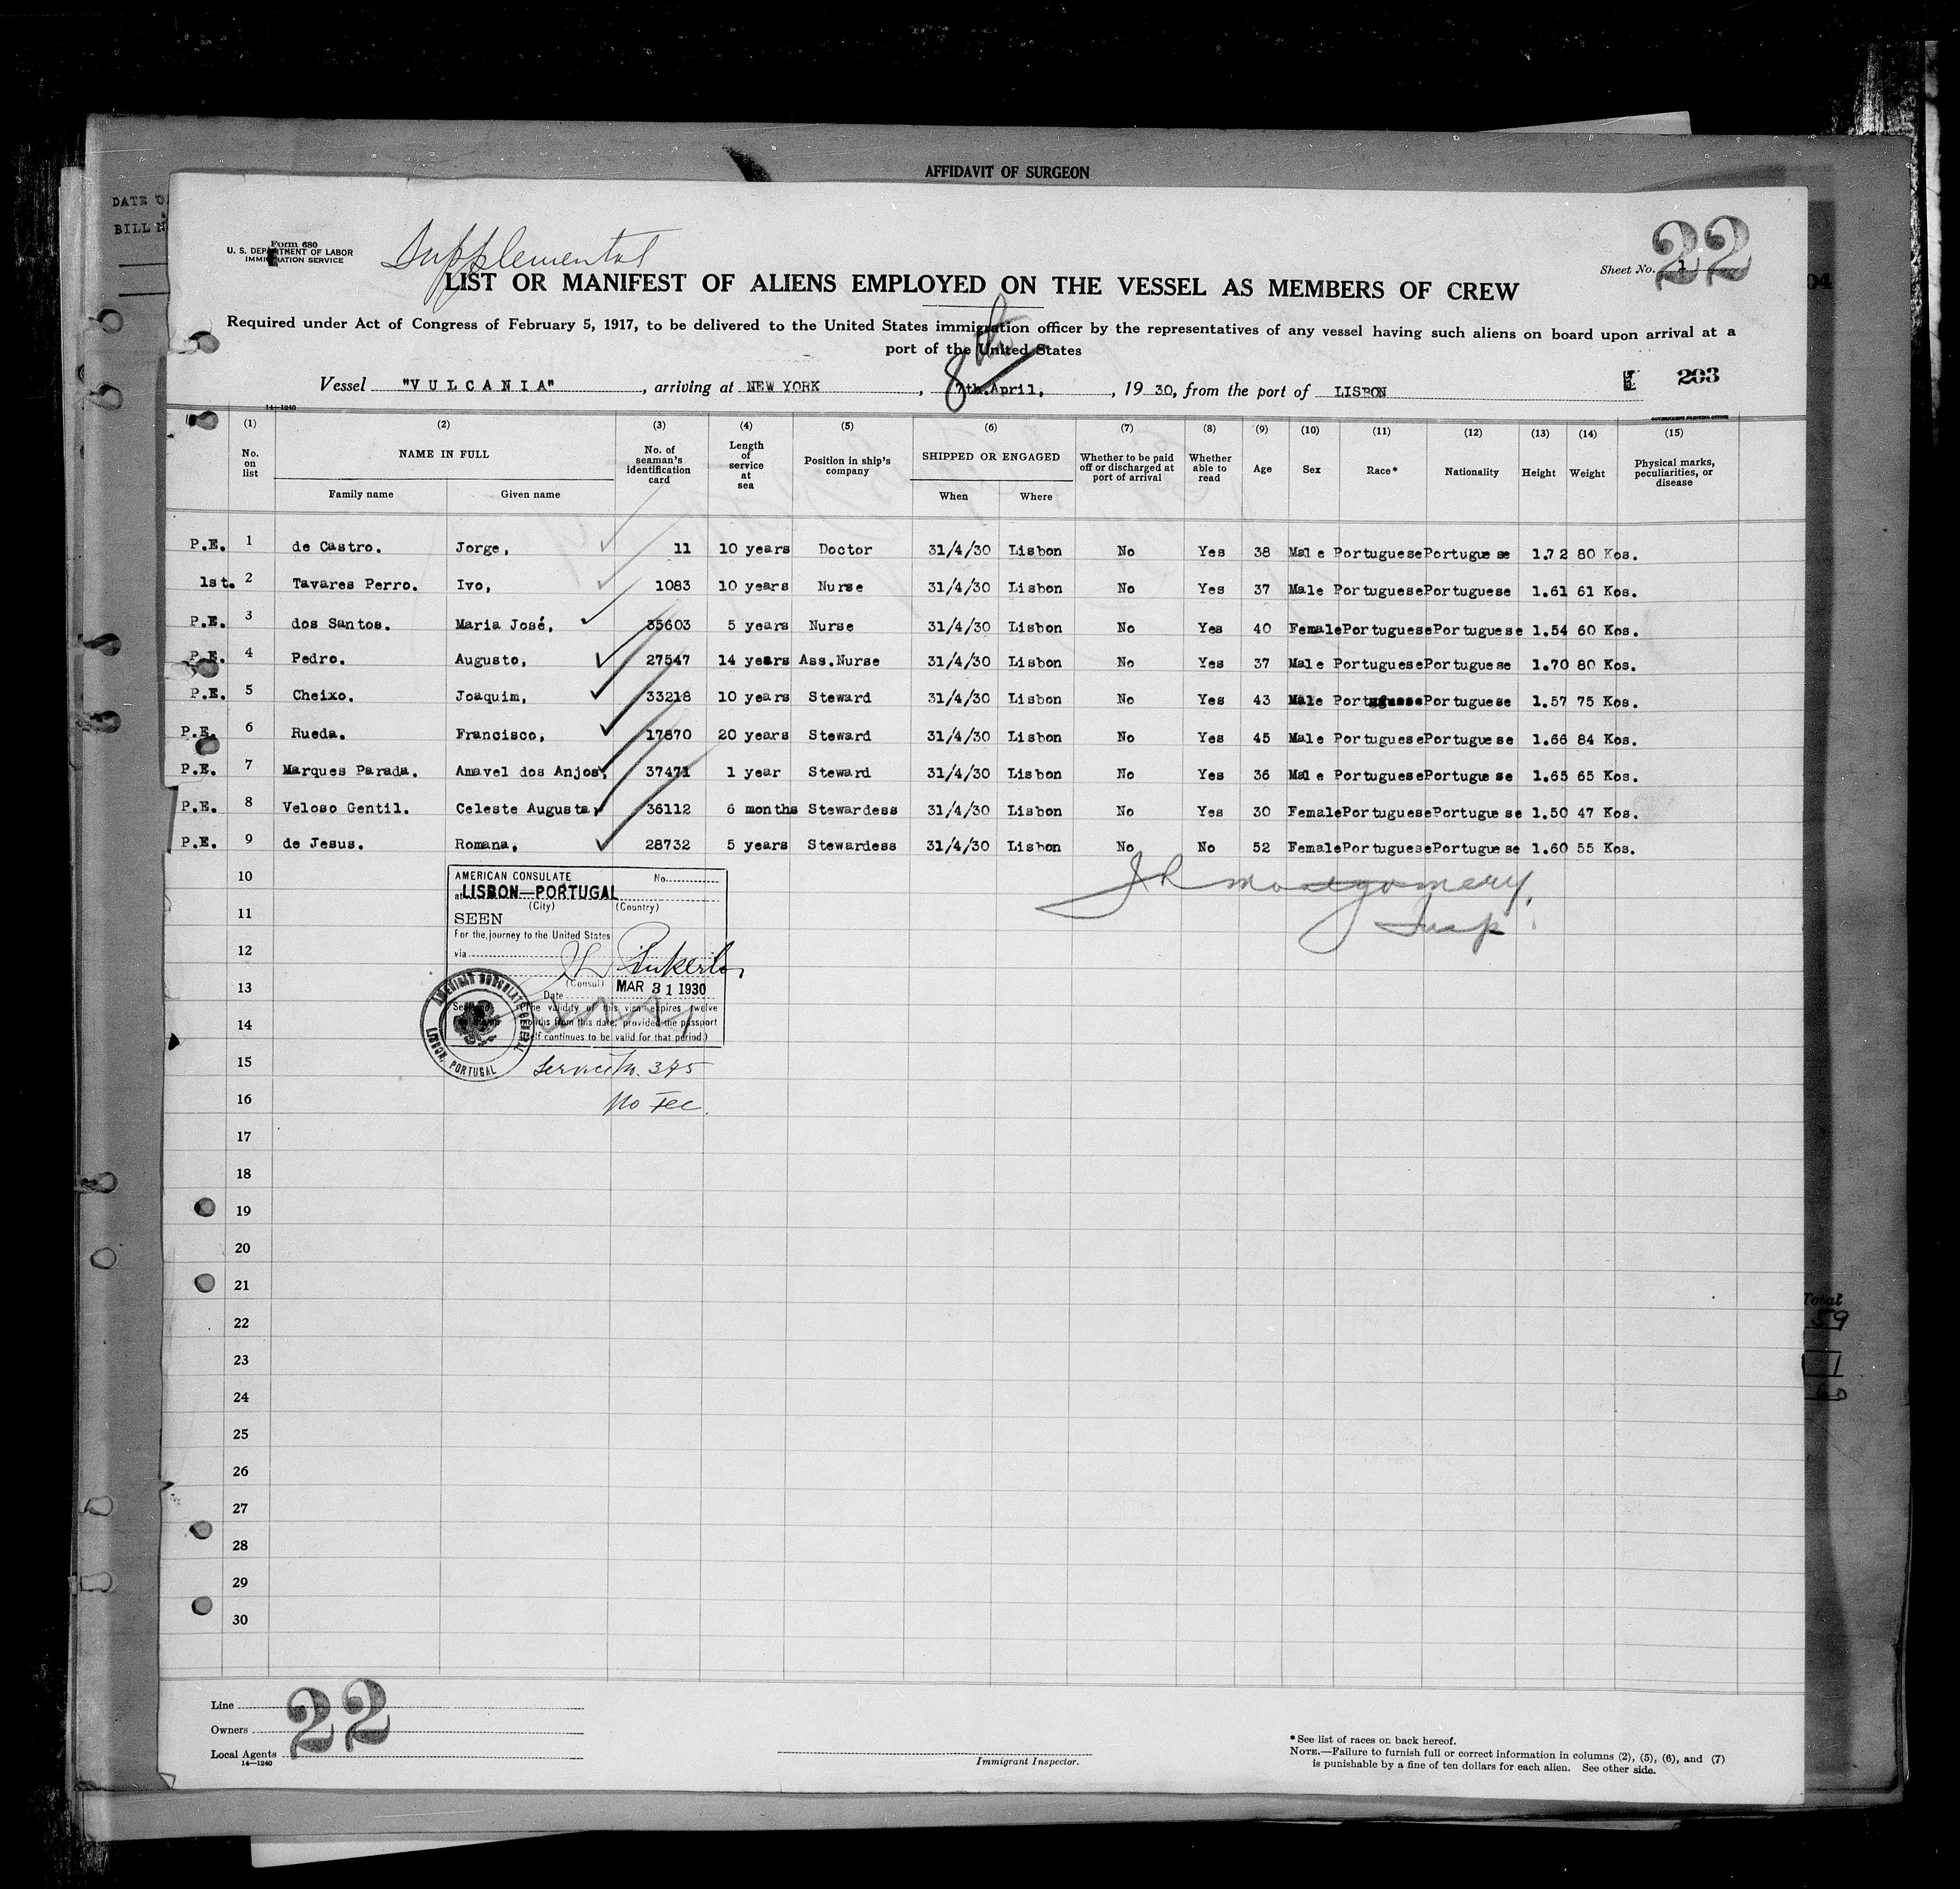 AFFIDAVIT OF SURGEON
DATE O
BILL N
Form 680
U. S. DEPARTMENT OF LABOR
IMMIGRATION SERVICE
Supplemental
22
Sheet No. 1
04
LIST OR MANIFEST OF ALIENS EMPLOYED ON THE VESSEL AS MEMBERS OF CREW
Required under Act of Congress of February 5, 1917, to be delivered to the United States immigration officer by the representatives of any vessel having such aliens on board upon arrival at a
port of the United States
8th
Vessel "VULCANIA", arriving at NEW YORK, 7th.April, 1930, from the port of LISBON
203
14—1240
GOVERNMENT PRINTING OFFICE
(1) (2) (3) (4) (5) (6) (7) (8) (9) (10) (11) (12) (13) (14) (15)
No. on list
NAME IN FULL
Family name Given name
No. of seaman's identification card
Length of service at sea
Position in ship's company
SHIPPED OR ENGAGED
When Where
Whether to be paid off or discharged at port of arrival
Whether able to read
Age
Sex
Race*
Nationality
Height
Weight
Physical marks, peculiarities, or disease
P.E. 1 de Castro. Jorge, 11 10 years Doctor 31/4/30 Lisbon No Yes 38 Male Portuguese Portuguese 1.72 80 Kos.
1st. 2 Tavares Perro. Ivo, 1083 10 years Nurse 31/4/30 Lisbon No Yes 37 Male Portuguese Portuguese 1.61 61 Kos.
P.E. 3 dos Santos. Maria José, 35603 5 years Nurse 31/4/30 Lisbon No Yes 40 Female Portuguese Portuguese 1.54 60 Kos.
P.E. 4 Pedro. Augusto, 27547 14 years Ass.Nurse 31/4/30 Lisbon No Yes 37 Male Portuguese Portuguese 1.70 80 Kos.
P.E. 5 Cheixo. Joaquim, 33218 10 years Steward 31/4/30 Lisbon No Yes 43 Male Portuguese Portuguese 1.57 75 Kos.
P.E. 6 Rueda. Francisco, 17870 20 years Steward 31/4/30 Lisbon No Yes 45 Male Portuguese Portuguese 1.66 84 Kos.
P.E. 7 Marques Parada. Amavel dos Anjos, 37471 1 year Steward 31/4/30 Lisbon No Yes 36 Male Portuguese Portuguese 1.65 65 Kos.
P.E. 8 Veloso Gentil. Celeste Augusta, 36112 6 months Stewardess 31/4/30 Lisbon No Yes 30 Female Portuguese Portuguese 1.50 47 Kos.
P.E. 9 de Jesus. Romana, 28732 5 years Stewardess 31/4/30 Lisbon No No 52 Female Portuguese Portuguese 1.60 55 Kos.
JR Montgomery,
Insp.
10
11
12
13
14
15
16
17
18
19
20
21
22
23
24
25
26
27
28
29
30
AMERICAN CONSULATE No.
at LISBON—PORTUGAL
(City) (Country)
SEEN
For the journey to the United States
via
Pinkerton
(Consul)
Date MAR 31 1930
(The validity of this visa expires twelve
months from this date, provided the passport
itself continues to be valid for that period.)
AMERICAN CONSULATE GENERAL
LISBON, PORTUGAL
Service No. 395
No Fee.
Total
59
1
60
Line
Owners
Local Agents
14—1240
22
Immigrant Inspector.
*See list of races on back hereof.
NOTE.—Failure to furnish full or correct information in columns (2), (5), (6), and (7)
is punishable by a fine of ten dollars for each alien. See other side.